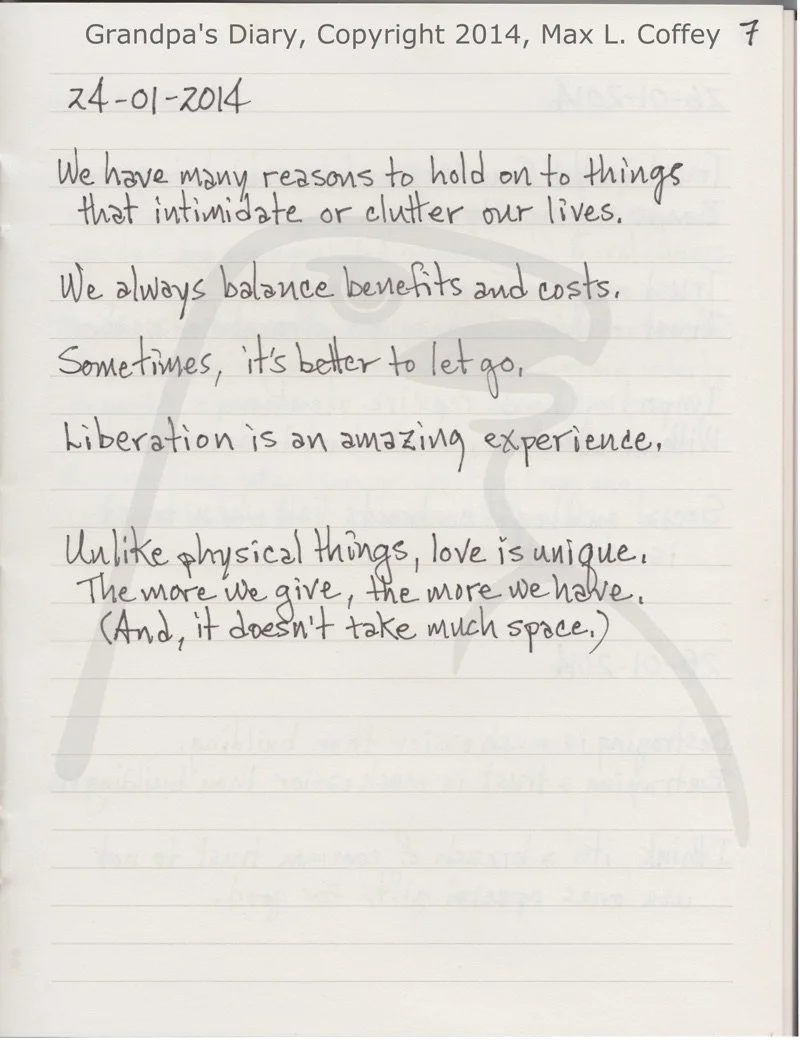 Grandpa's Diary, Copyright 2014, Max L. Coffey 7
24-01-2014
We have many reasons to hold on to things
that intimidate or clutter our lives.
We always balance benefits and costs.
Sometimes, it's better to let go.
Liberation is an amazing experience.
Unlike physical things, love is unique.
The more we give, the more we have.
(And, it doesn't take much space.)